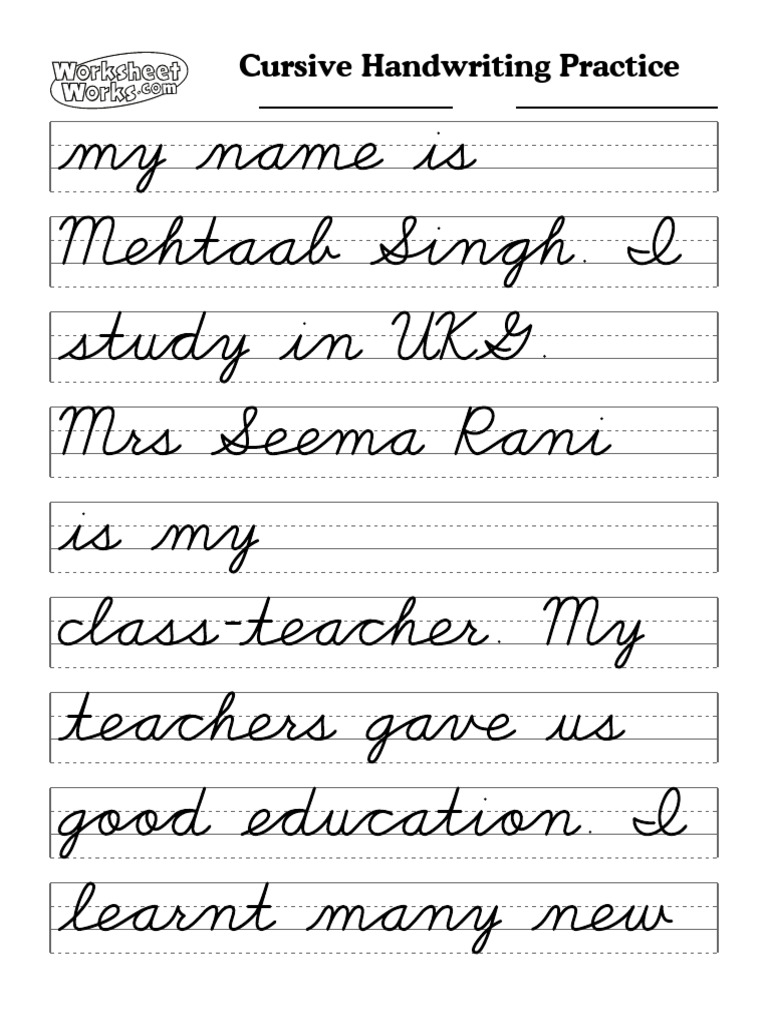 Worksheet
Works.com
Cursive Handwriting Practice
my name is
Mehtaab Singh. I
study in UKG.
Mrs Seema Rani
is my
class-teacher. My
teachers gave us
good education. I
learnt many new